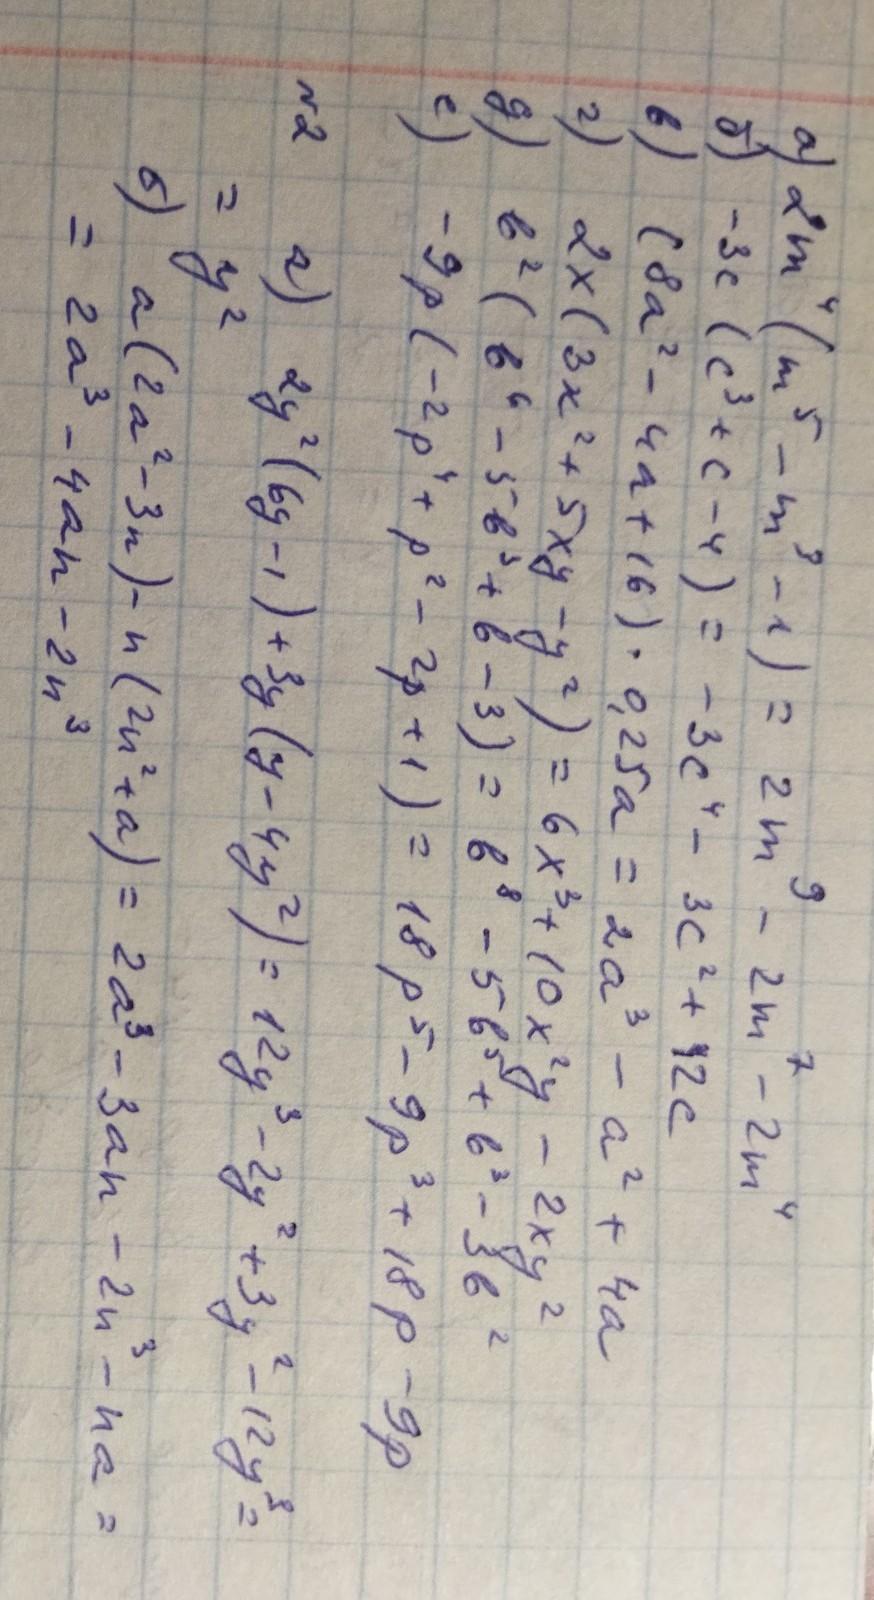 а) 2m⁴(m⁵ - m³ - 1) = 2m⁹ - 2m⁷ - 2m⁴
б) -3c(c³ + c - 4) = -3c⁴ - 3c² + 12c
в) (8a² - 4a + 16) · 0,25a = 2a³ - a² + 4a
г) 2x(3x² + 5xy - y²) = 6x³ + 10x²y - 2xy²
д) b²(b⁶ - 5b³ + b - 3) = b⁸ - 5b⁵ + b³ - 3b²
е) -9p(-2p⁴ + p² - 2p + 1) = 18p⁵ - 9p³ + 18p - 9p
№2 а) 2y²(6y - 1) + 3y(y - 4y²) = 12y³ - 2y² + 3y² - 12y³ =
= y²
б) a(2a² - 3n) - n(2n² + a) = 2a³ - 3an - 2n³ - na =
= 2a³ - 4an - 2n³